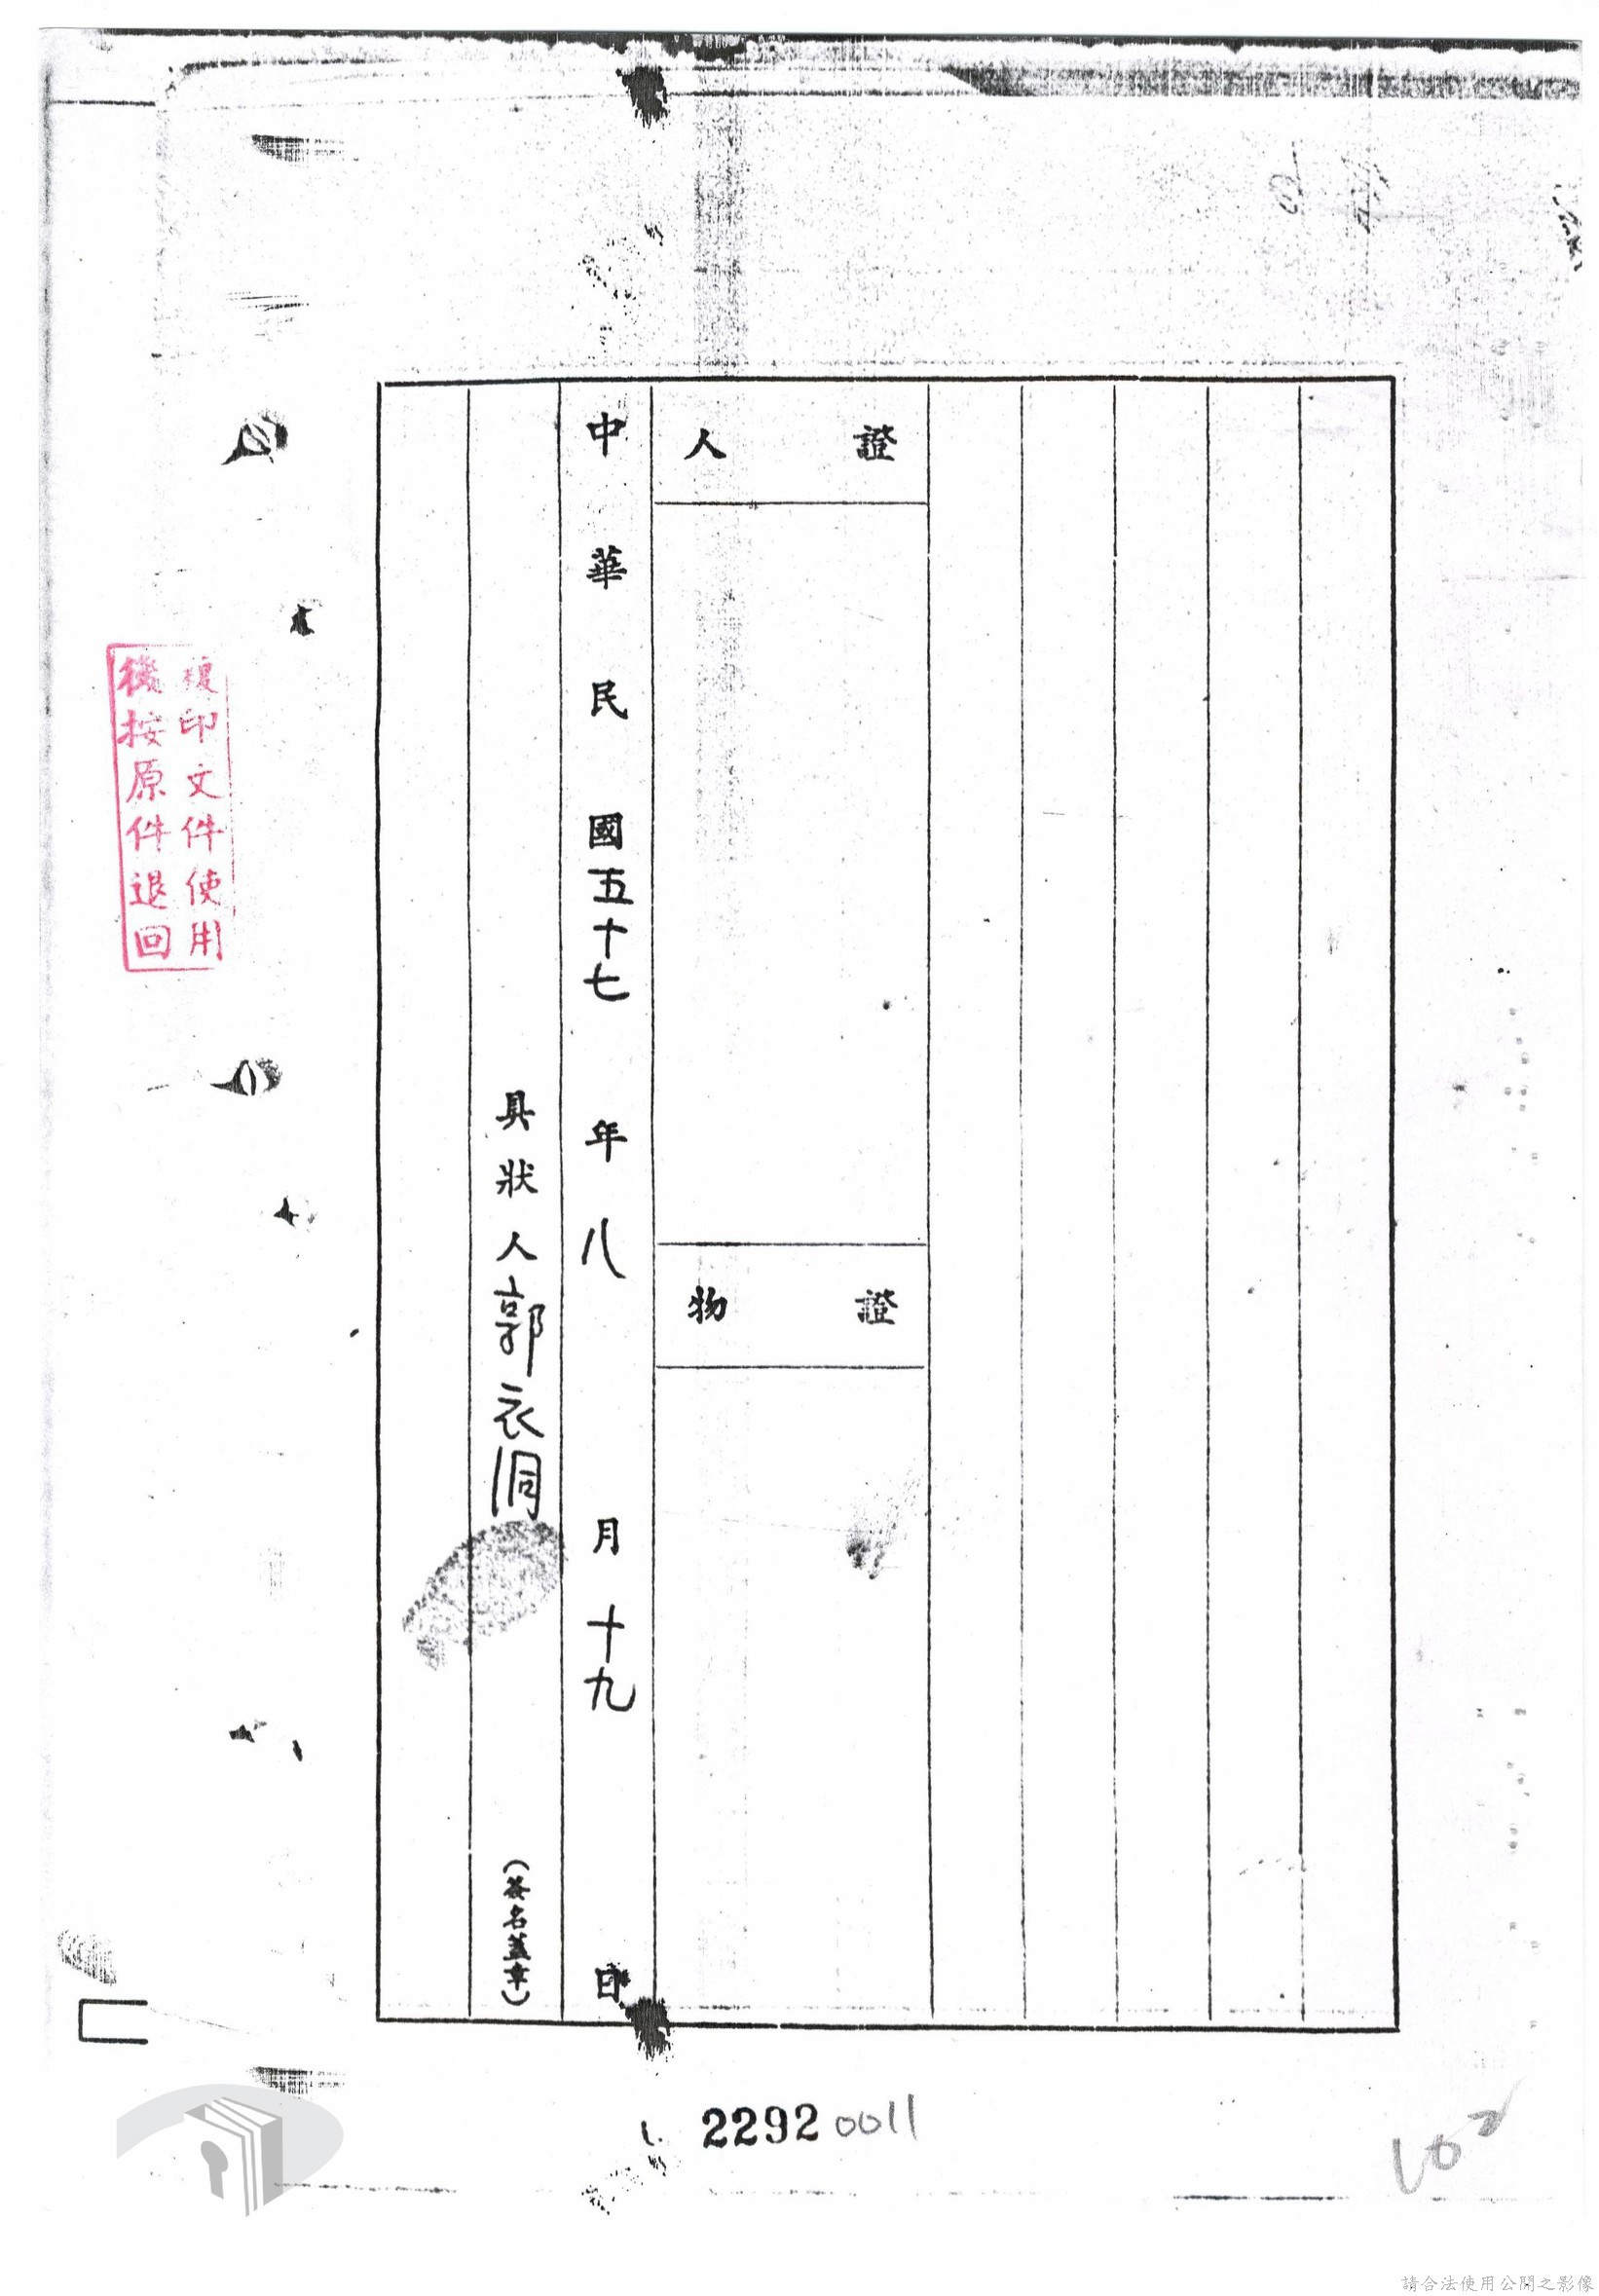 證人
證物
中華民國五十七年八月十九日
具狀人郭衣洞（簽名蓋章）
複印文件使用
後按原件退回
22920011
102
請合法使用公開之影像